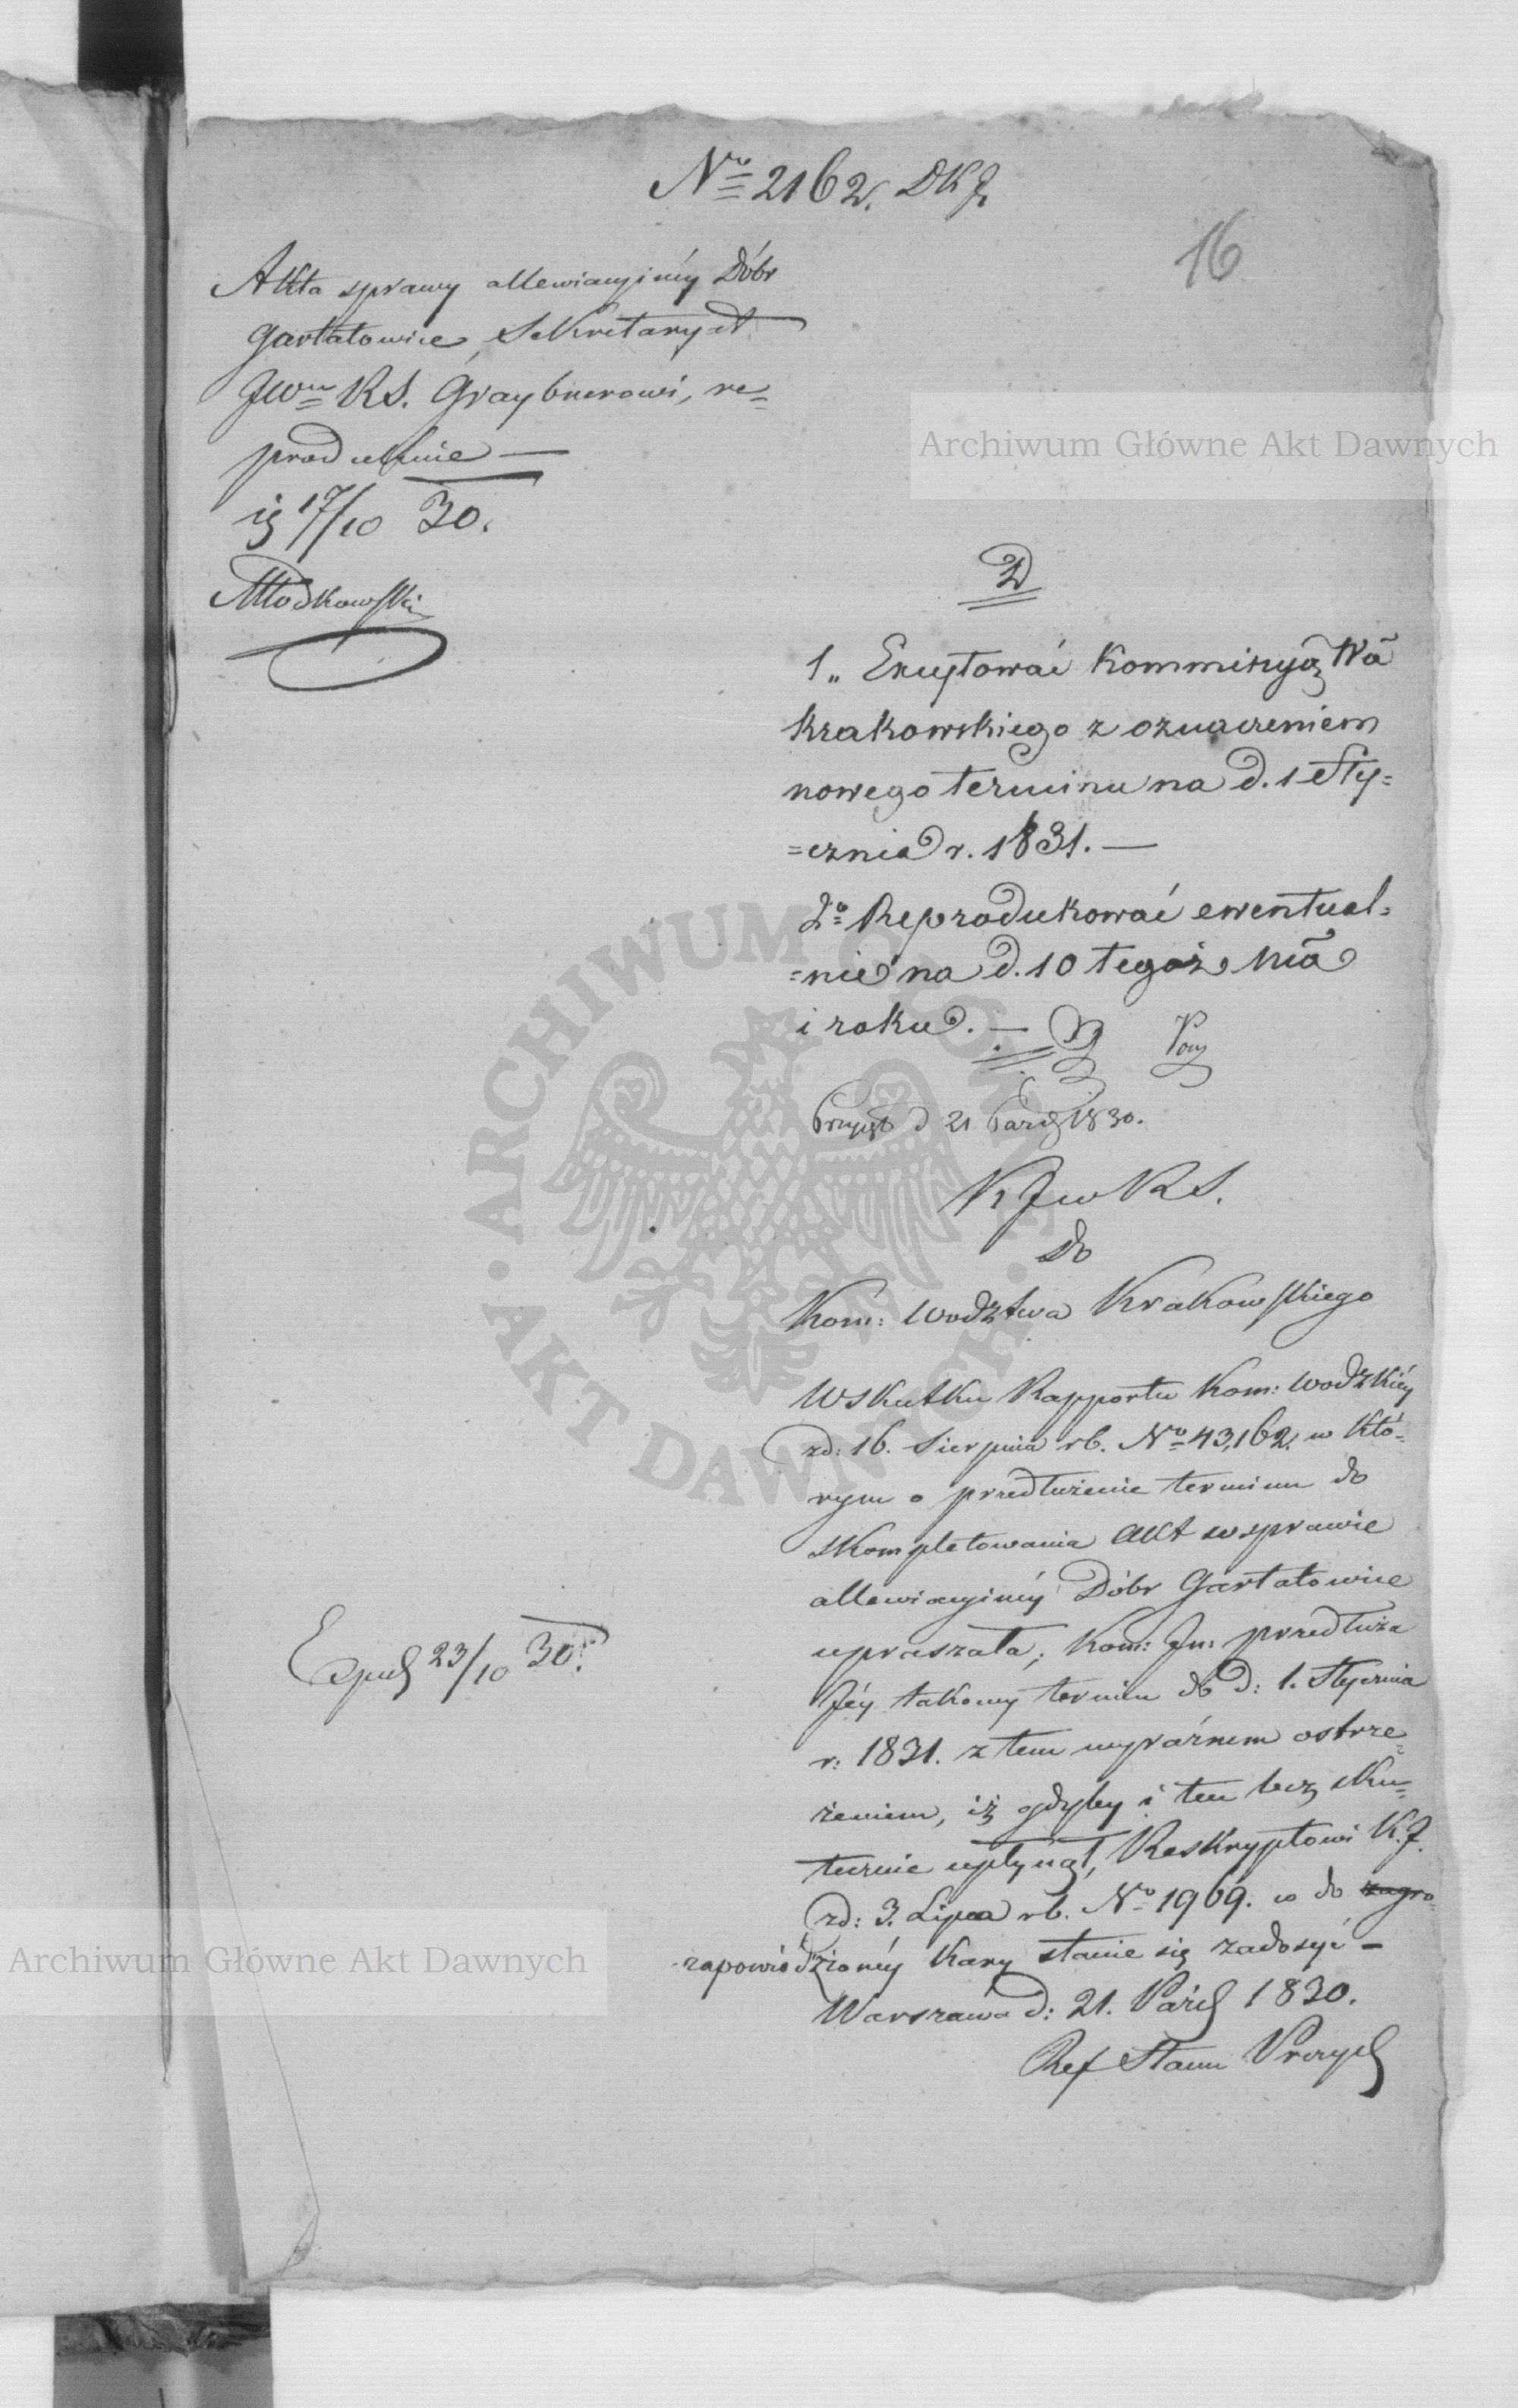 No 2162. DKJ
16
Akta sprawy allewiacyinéy Dóbr
Gartatowice, Sekretaryat
JWu KS. Graybnerowi, re=
produkuie —
17/10 30.
Młodkowski
D
1„ Excytować Kommissyą Wa
Krakowskiego z oznaczeniem
nowego terminu na d. 1 Sty=
=cznia r. 1831. —
2o Reprodukować ewentual=
=nie na d. 10 tegoż Mca
i roku. —
Przyięto d 21 Paźd 1830.
K J w K S.
do
Kom: Wodztwa Krakowskiego
Wskutku Rapportu Kom: Wodzkiéy
zd: 16. Sierpnia rb. No 43,162. w któ=
rym o przedłużenie terminu do
skompletowania Akt w sprawie
allewiacyinéy Dóbr Gartatowice
upraszała, Kom: Jn: przedłuża
Jéy takowy termin do d: 1. Stycznia
r: 1831. z tem wyraźnem ostrze=
żeniem, iż gdyby i ten bez sku=
tecznie upłynął, Reskryptowi K.J.
zd: 3. Lipca rb. No 1969. co do zagro=
zapowiedzionéy kary stanie się zadosyć —
Warszawa d: 21. Paźd 1830.
Ref Stanu
Exped 23/10 30.
Archiwum Główne Akt Dawnych
ARCHIWUM GŁÓWNE
AKT DAWNYCH
Archiwum Główne Akt Dawnych